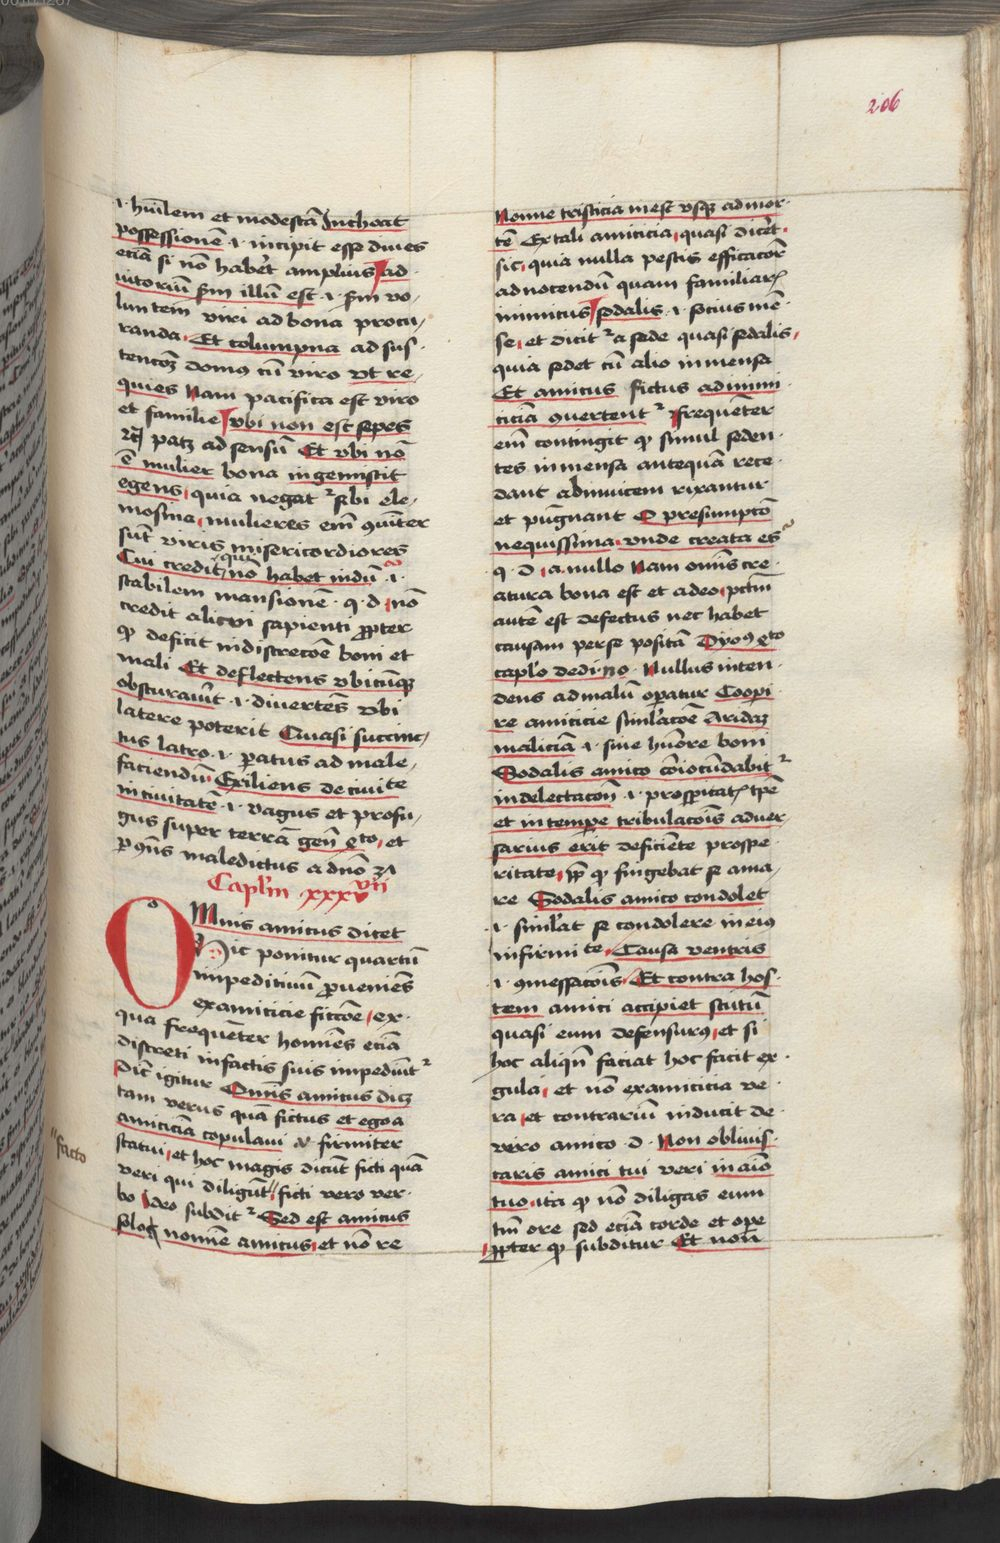 206
.i. hūilem et modestā Inchoat
possessionē .i. incipit esse diues
etiā si nō habet amplius ad
iutoriū scdm illū est .i. scdm vo
luntem viri ad bona procu
randa Et columpna ad sus
tentcōz domus cū viro vt re
quies Nam pacifica est viro
et familie Vbi non est sepes
patz ad sensū Et vbi nō
ē mulier bona ingemiscit
egens quia negatur sibi ele
mosina mulieres enī
sūt viris misericordiores
Cui credit qui nō habet nidū .i.
stabilem mansionē q. d. nō
credit alicui sapienti propter
quod deficit in discretōe boni et
mali Et deflectens vbicūque
obscurauit .i. diuertens vbi
latere poterit Quasi succinc
tus latro .i. paratus ad male
faciendū Exiliens de ciuite
in ciuitatē .i. vagus et profu
gus super terrā gen̄ qto et
per qns maledictus a dno
Caplm xxxvii
OMnis amicus dicet
Hic ponitur quartū
impeditiuū proueniēs
ex amicicie fictōe ex
qua frequēter homīes etiā
discreti in factis suis impediūtur
Dic̄ igitur Omīs amicus dicz
tam verus quā fictus et ego a
amiciciā copulaui firmiter
statui et hoc magis dicūt ficti quā
veri qui diligūt ficti vero ver
facto
bo Ideo subditur Sed est amicus
solo nomīe amicus et nō re
Nonne tristicia inest vsque ad mor
tē Ex tali amicicia quasi dicēt
sic quia nulla pestis efficacior
ad nocendū quam familiaris
inimicus sodalis .i. socius mē
se et dicitur a sede quasi sedalis
quia sedet cū alio in mensa
Et amicus fictus ad inimi
ciciā conuertentur frequēter
enī contingit quod simul seden
tes in mensa antequā rece
dant ab inuicem rixantur
et pugnant O presumptō
nequissima vnde creata es
q. d. a nullo Nam omīs cre
atura bona est et a deo
autē est defectus nec habet
causam per se positā Dyoni qto
caplo de di. no. Nullus inten
dens ad malū operatur Coopi
re amicicie similacōe Aridaz
maliciā .i. sine huōre boni
Sodalis amico cōiocūdabitur
in delectacōn .i. prosperitatis tpē
et in tempe tribulacōis aduer
sarius erit deficiēte prospe
ritate ipse quod fingebat se ama
re Sodalis amico condolet
.i. simulat se condolere in eius
infirmite Causa ventris
.i. conmessacōis Et contra hos
tem amici accipiet scutū
quasi eum defensurus et si
hoc aliqn faciat hoc facit ex
gula et nō ex amicicia ve
ra et contrariū inducit de
vero amico d. Non obliuis
caris amici tui veri in aīo
tuo ita quod nō diligas eum
tm ore sed etiā corde et ope
propter quod subditur Et non